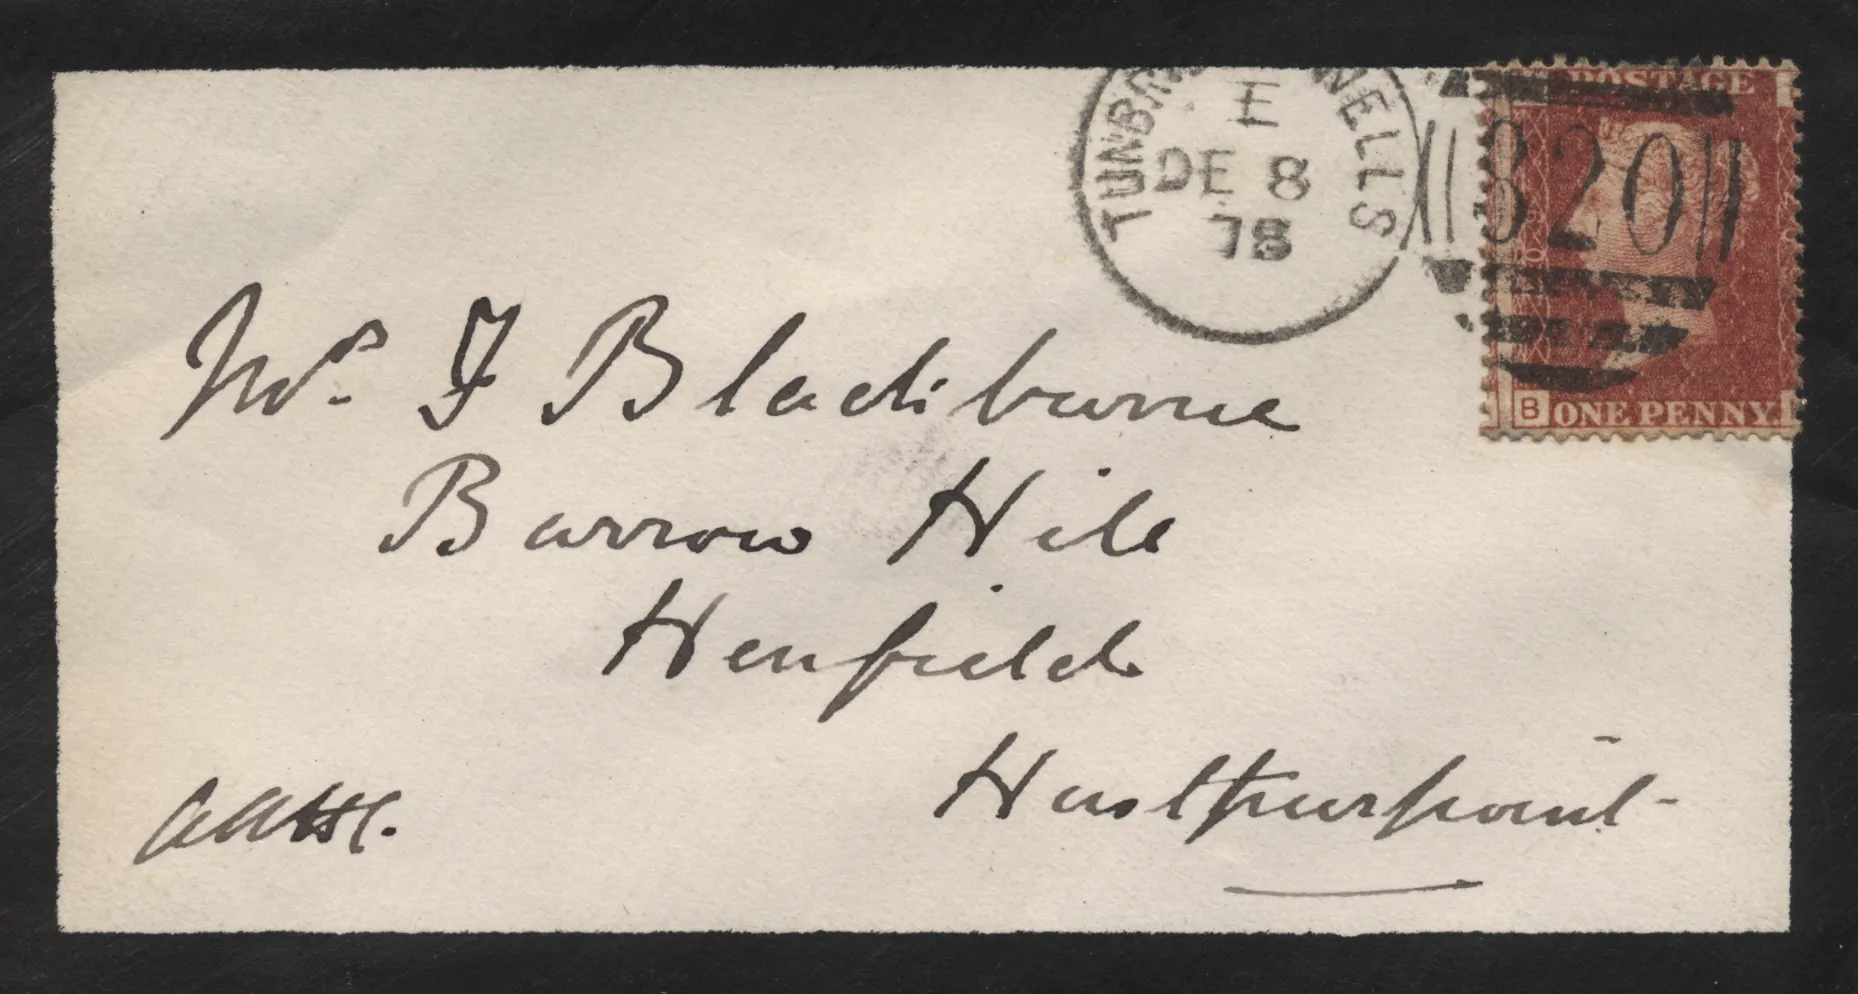 TUNBRIDGE WELLS
E
DE 8
78
820
POSTAGE
B ONE PENNY.
Mrs. F Blackburne
Barrow Hill
Henfield
Hurstpierpoint